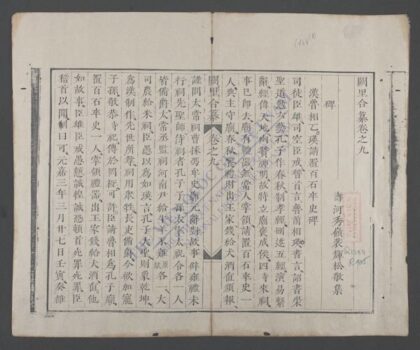 闕里合纂卷之九
碑
漢魯相乙瑛請置百石卒史碑
司徒臣雄司空臣戒稽首言魯前相瑛書言詔書崇
聖道勉六藝孔子作春秋制孝經刪述五經演易繫
辭經緯天地幽讚神明故特立廟褒成侯四時來祠
事已即去廟有禮器無常人掌領請置百石卒史一
人典主守廟春秋饗禮財出王家錢給犬酒直須報
闕里合纂 卷之九
謹問太常祠曹掾馮牟史郭玄辭對故事辟雍禮未
行祠先聖師侍祠者孔子子孫太宰太祝令各一人
皆備爵太常丞監祠河南尹給牛羊豕雞各一大
司農給米祠臣愚以為如瑛言孔子大聖則象乾坤
為漢制作先世所尊祠用眾牲長吏備爵今欲加寵
子孫敬恭明祀傳於罔極可許臣請魯相為孔子廟
置百石卒史一人掌領禮器出王家錢給犬酒直他
如故事臣雄臣戒愚戇誠惶誠恐頓首死罪死罪臣
稽首以聞制曰可元嘉三年三月廿七日壬寅奏雒